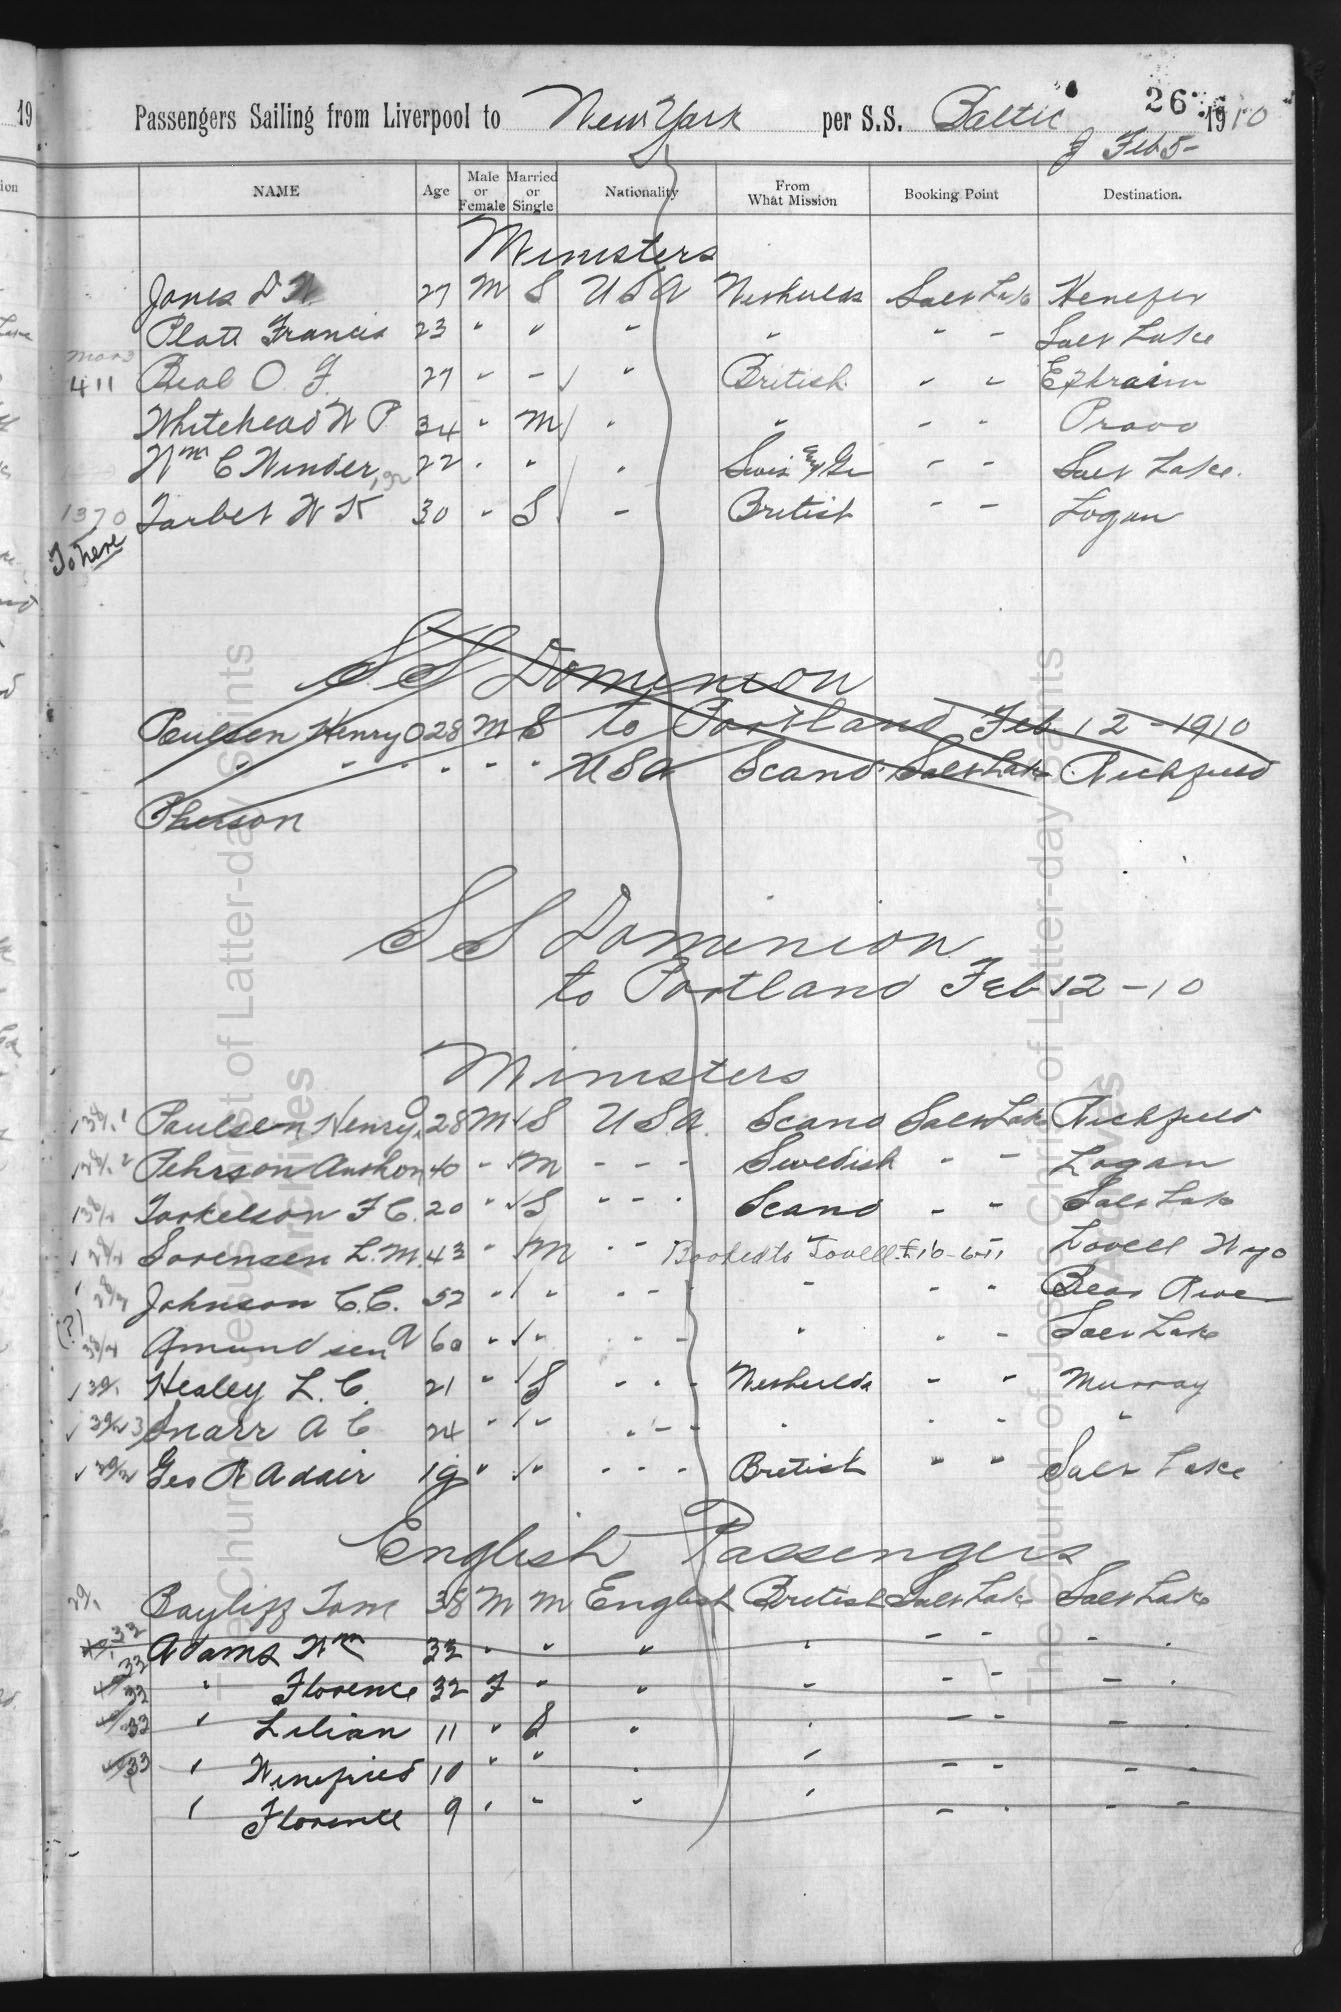 19
26
Passengers Sailing from Liverpool to New York per S.S. Baltic 1910
Feb 5-
NAME Age Male or Female Married or Single Nationality From What Mission Booking Point Destination.
Ministers
Jones D 27 M S USA Netherlds Salt Lake Henefer
Platt Francis 23 " " " " - - Salt Lake
Mar 3
411 Beal O. F. 27 - - " British - - Ephraim
Whitehead W P 34 " M " " - - Provo
Wm C Winder, jr 22 " " " Swis & Ger - - Salt Lake.
1370 Tarbet W K 30 " S - British - - Logan
To here
S S Dominion
Paulsen Henry O 28 M S to Portland Feb 12-1910
" " " - - - USA Scand. Salt Lake Richfield
Pherson
S S Dominion
to Portland Feb 12-10
Ministers
Paulsen Henry O. 28 M S USA. Scand Salt Lake Richfield
Pehrson Anthon 40 - M - - - Swedish - - Logan
Torkelson F C. 20 " S - - - Scand - - Salt Lake
Sorensen L. M. 43 " M - - Booked to Lovell £16-6-11 Lovell Wyo
Johnson C. C. 52 " " - - - " - - Bear River
(?) Amundsen A 60 " " - - - " - - Salt Lake
Healey L. C. 21 " S - - - Netherlds - - Murray
Snarr A C 24 " " - - - " - - "
Geo R Adair 19 " " - - - British " " Salt Lake
English Passengers
Bayliff Tom 38 M M English British Salt Lake Salt Lake
33 Adams Wm 33 " " " " - - - -
33 " Florence 32 F " " " - - - -
33 " Lilian 11 " S " " - - - -
33 " Winefried 10 " " " " - - - -
33 " Florence 9 " " " " - - - -
The Church of Jesus Christ of Latter-day Saints
Archives
The Church of Jesus Christ of Latter-day Saints
Archives